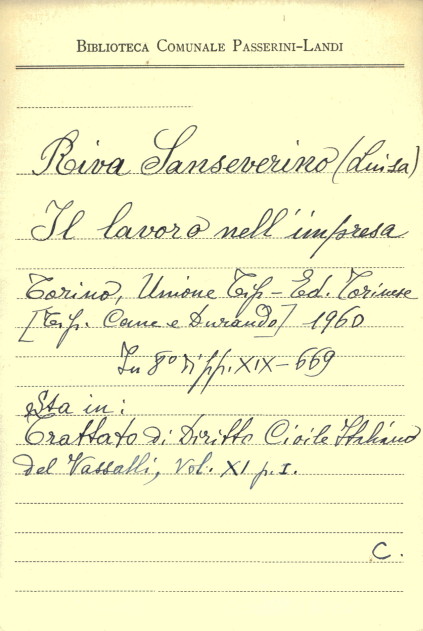 BIBLIOTECA COMUNALE PASSERINI-LANDI
Riva Sanseverino (Luisa)
Il lavoro nell'impresa
Torino, Unione Tip-Ed. Torinese
[Tip. Came e Durando] 1960
In 8° di pp. XIX-669
Sta in:
Trattato di Diritto Civile Italiano
del Vassalli, Vol. XI p. I.
C.